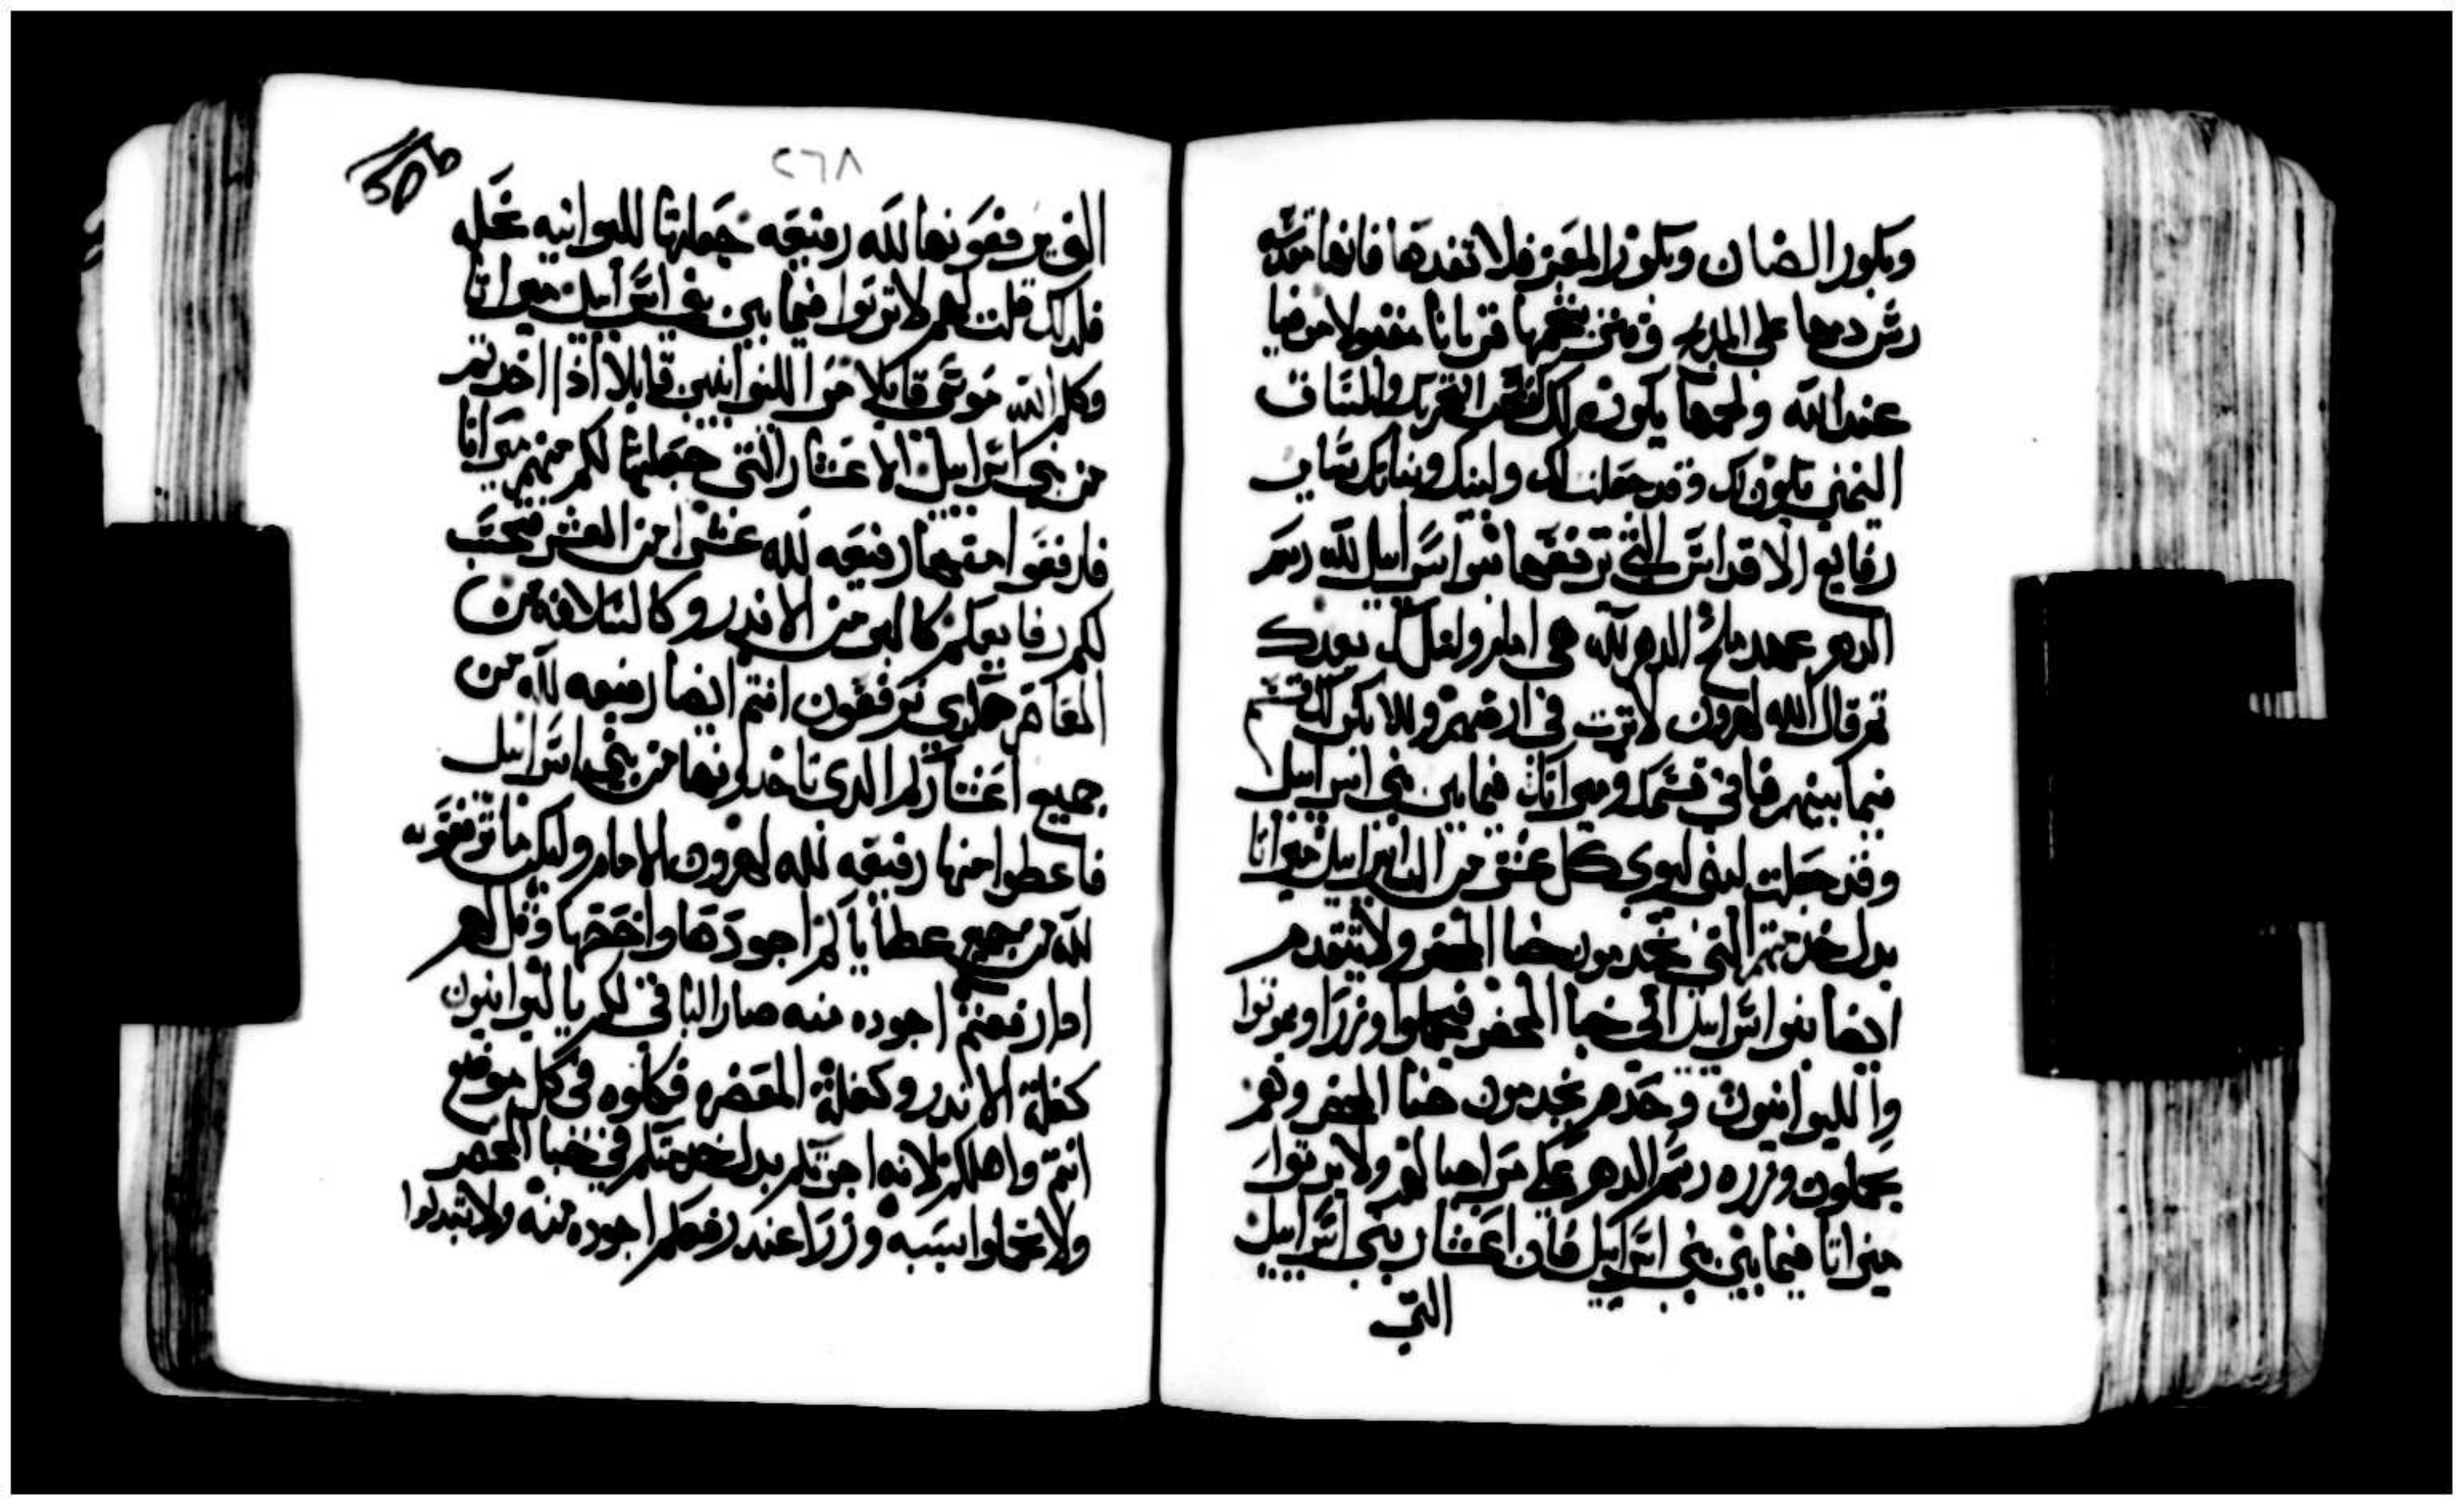 وبكور الضان وبكور المعز فلا تفدها فانها مقدسه
رش دمها على المدبح وقتر شحمها قربانا مقبولا مرضيا
عند الله ولحمها يكون لك كقص التحريك والساق
اليمنى تكون لك وقد جعلت لك ولبنيك وبناتك ساير
رفايع الاقداس التي ترفعها بنوا اسراييل لله رسم
الدهر عهد ملح الدهر لله هي امام ولنسلك بعدك
تم قال الله لهرون لا ترت في ارضهم ولا يكن لك قسم
فيما بينهم فاني قسمك وميراتك فيما بين بني اسراييل
وقد جعلت لبني ليوي كل عشر من ال اسراييل ميراتا
بدل خدمتهم التي يخدمون خبا المحضر ولا يتقدم
ايضا بنوا اسراييل الى خبا المحضر فيحملوا وزرا ويموتوا
والليوانيون وحدهم يخدمون خبا المحضر وهم
يحملون وزره رسم الدهر على مر اجيالهم ولا يرتوا
ميراتا فيما بين بني اسراييل فان اعشار بني اسراييل
التي
٢٦٨
50b
التي يرفعونها لله رفيعه جعلتها لليوانيه نحله
فلدلك قلت لهم لا يرتوا فيما بين بني اسراييل ميراتا
وكلم الله موسى قايلا مر الليوانيين قايلا اذا اخدتم
من بني اسراييل الاعشار التي جعلتها لكم منهم ميراتا
فارفعوا منها رفيعه لله عشرا من العشر فيحتسب
لكم رفايعكم كالبر من الاندر وكالسلافه من
المعاصر هكدي ترفعون انتم ايضا رفيعه لله من
جميع اعشاركم الدي تاخدونها من بني اسراييل
فاعطوا منها رفيعه لله لهرون الامام وليكن ما ترفعونه
لله من جميع عطاياكم اجودها واخصها وقل لهم
ادا رفعتم اجوده منه صار الباقي لكم يا ليوانيون
كغلة الاندر وكغلة المعصره فكلوه في كل موضع
انتم واهلكم لانه اجرتكم بدل خدمتكم في خبا المحضر
ولا تحملوا بسببه وزرا عند رفعكم اجوده منه ولا تبدلوا